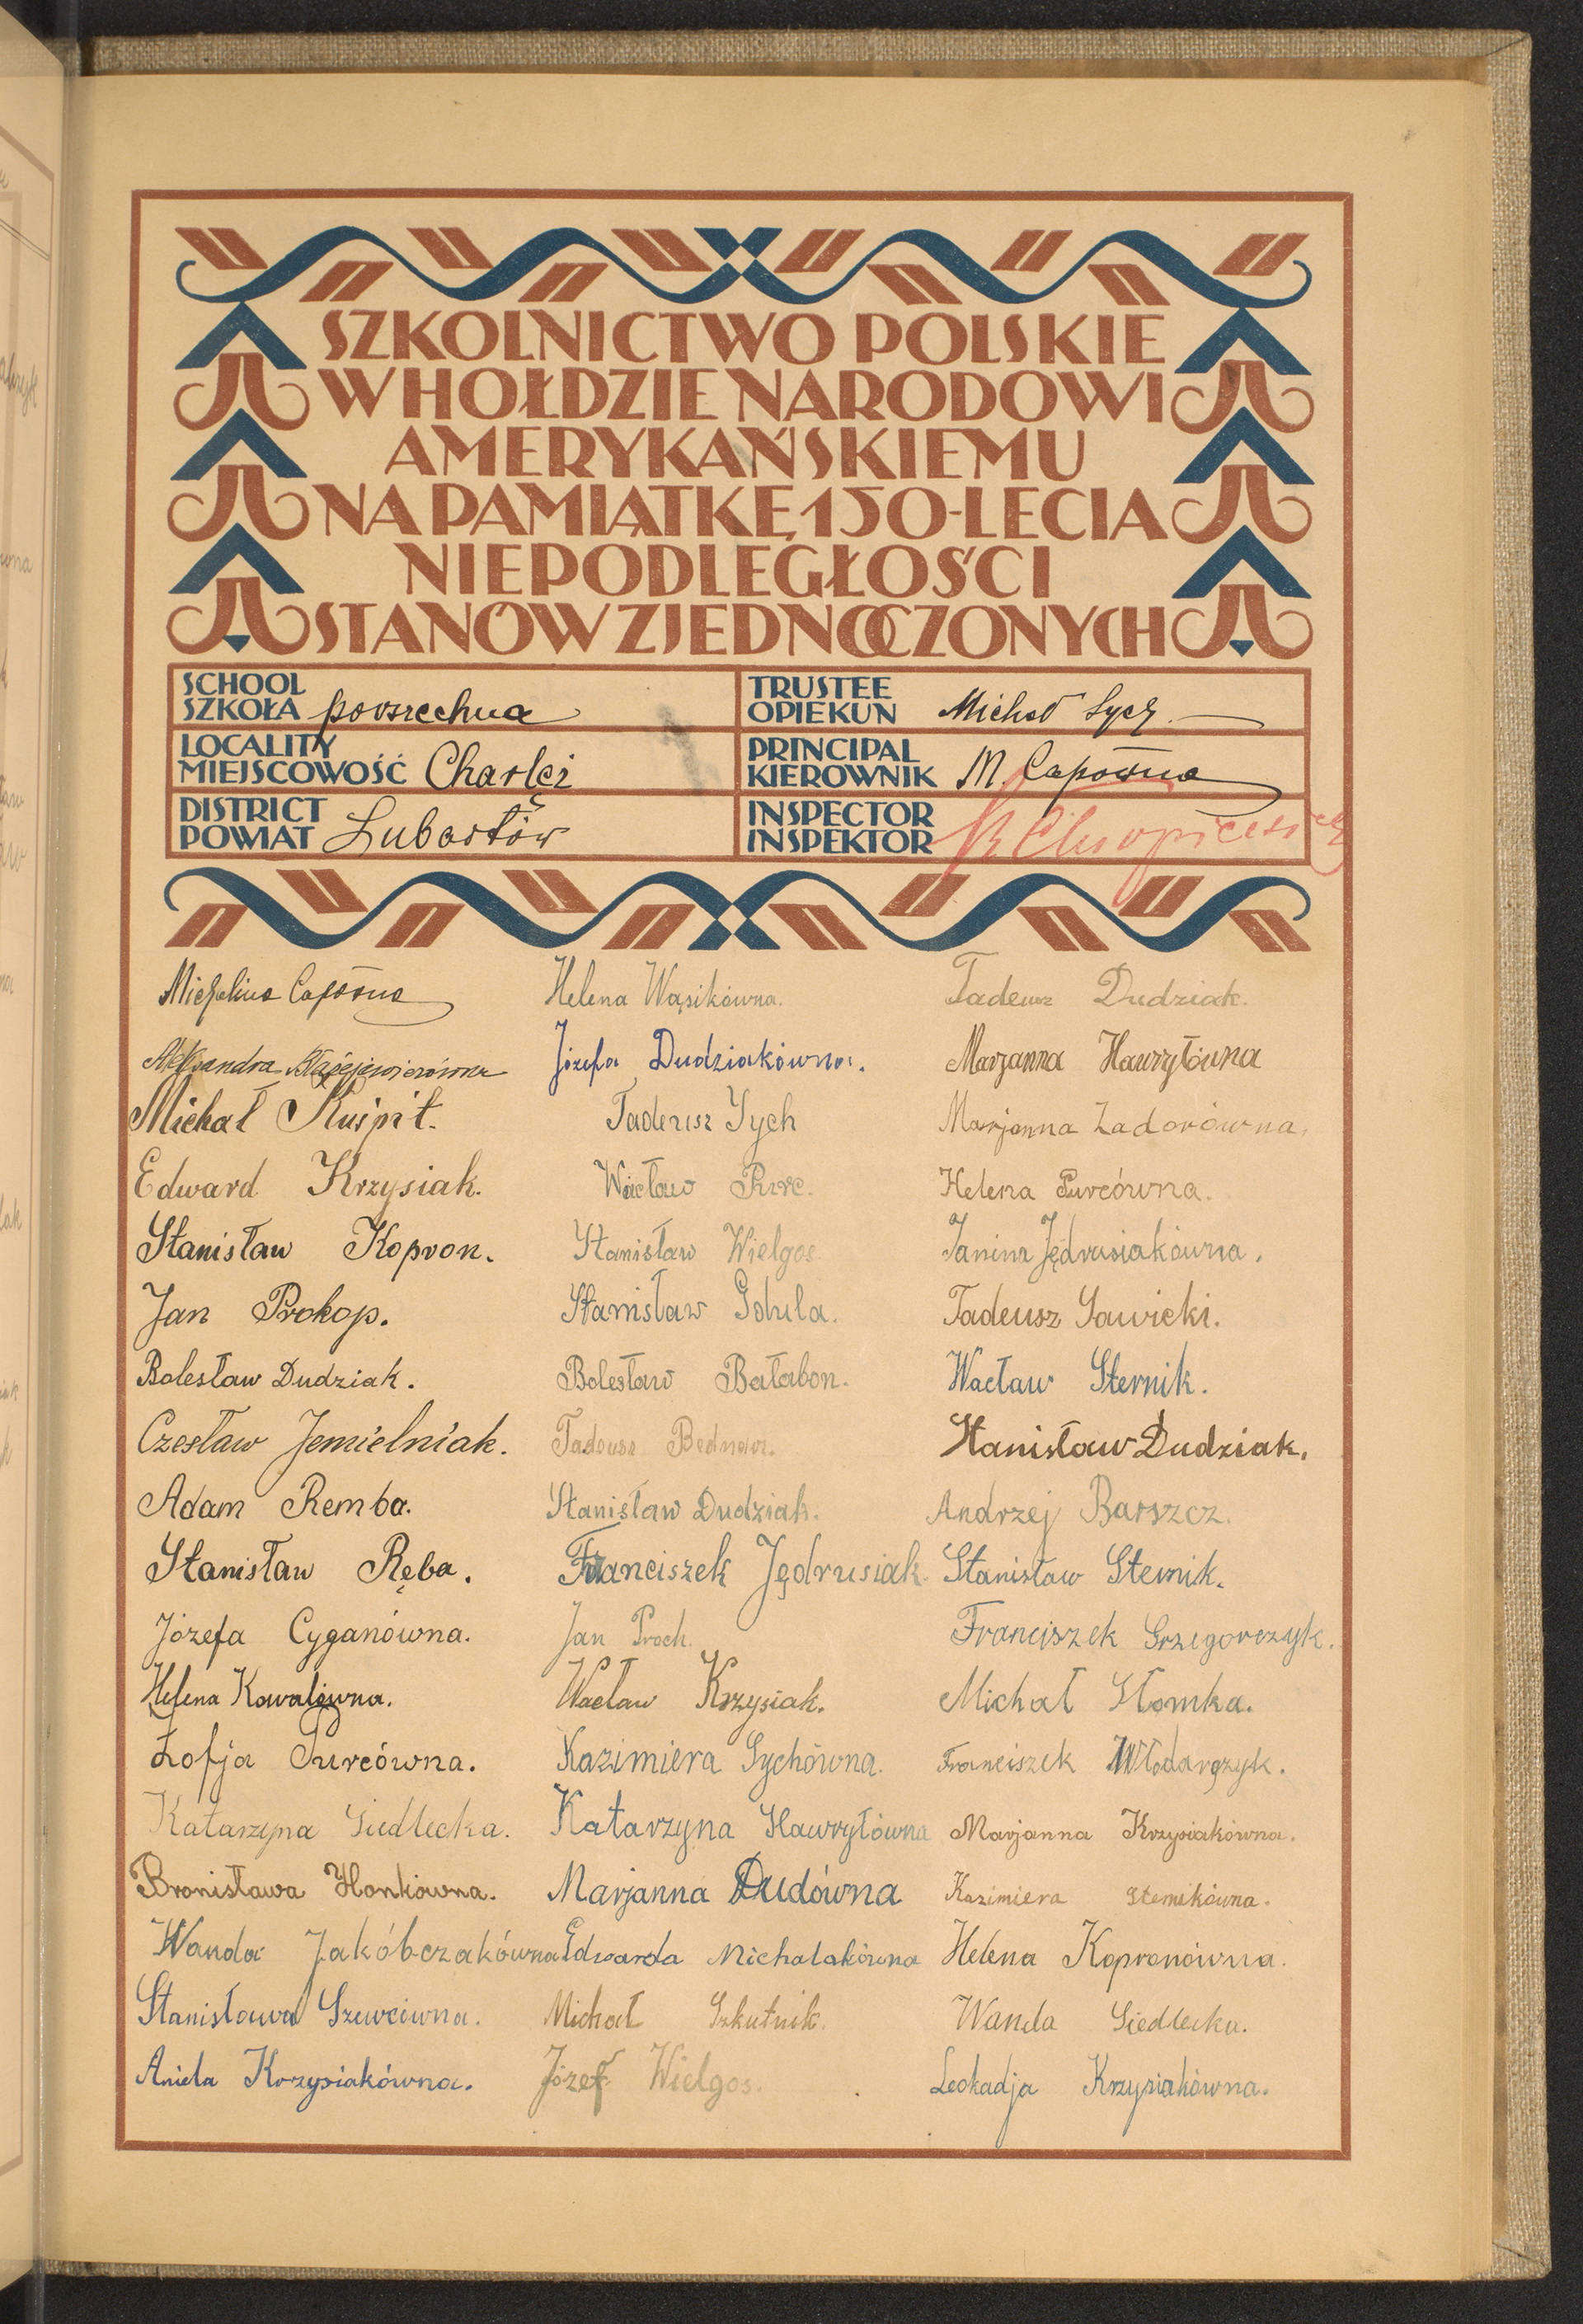 SZKOLNICTWO POLSKIE
W HOŁDZIE NARODOWI
AMERYKAŃSKIEMU
NA PAMIĄTKĘ 150-LECIA
NIEPODLEGŁOŚCI
STANÓW ZJEDNOCZONYCH
SCHOOL
SZKOŁA powszechna
TRUSTEE
OPIEKUN Michał Sych
LOCALITY
MIEJSCOWOŚĆ Charlęż
PRINCIPAL
KIEROWNIK M. Capówna
DISTRICT
POWIAT Lubartów
INSPECTOR
INSPEKTOR
Michalina Capówna
Aleksandra
Michał Kuśpit.
Edward Krzysiak.
Stanisław Kopron.
Jan Prokop.
Bolesław Dudziak.
Czesław Jemielniak.
Adam Remba.
Stanisław Ręba.
Józefa Cyganówna.
Helena Kowalówna.
Zofja Purcówna.
Katarzyna Siedlecka.
Bronisława Honkówna.
Wanda Jakóbczakówna
Stanisława Szewcówna.
Aniela Krzysiakówna.
Helena Wąsikówna.
Józefa Dudziakówna.
Tadeusz Sych
Wacław Purc.
Stanisław Wielgos
Stanisław Gdula.
Bolesław Bałabon.
Tadeusz Bednarz.
Stanisław Dudziak.
Franciszek Jędrusiak.
Jan Proch.
Wacław Krzysiak.
Kazimiera Sychówna.
Katarzyna Hawryłówna
Marjanna Dudówna
Edwarda Michalakówna
Michał Szkutnik.
Józef Wielgos.
Tadeusz Dudziak.
Marjanna Hawryłówna
Marjanna Zadorówna,
Helena Purcówna.
Janina Jędrusiakówna.
Tadeusz Sawicki.
Wacław Sternik.
Stanisław Dudziak.
Andrzej Barszcz.
Stanisław Sternik.
Franciszek Grzegorczyk.
Michał Słomka.
Franciszek Włodarczyk.
Marjanna Krzysiakówna.
Kazimiera Sternikówna.
Helena Kopronówna.
Wanda Siedlecka.
Leokadja Krzysiakówna.